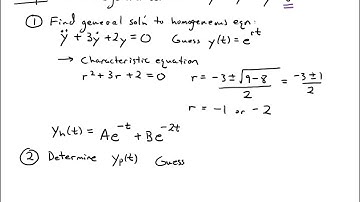 ① Find general soln to homogeneous eqn:
ÿ + 3ẏ + 2y = 0 Guess y(t) = e^{rt}
→ Characteristic equation
r² + 3r + 2 = 0 r = (-3 ± √(9-8))/2 = (-3 ± 1)/2
r = -1 or -2
y_h(t) = Ae^{-t} + Be^{-2t}
② Determine y_p(t) Guess